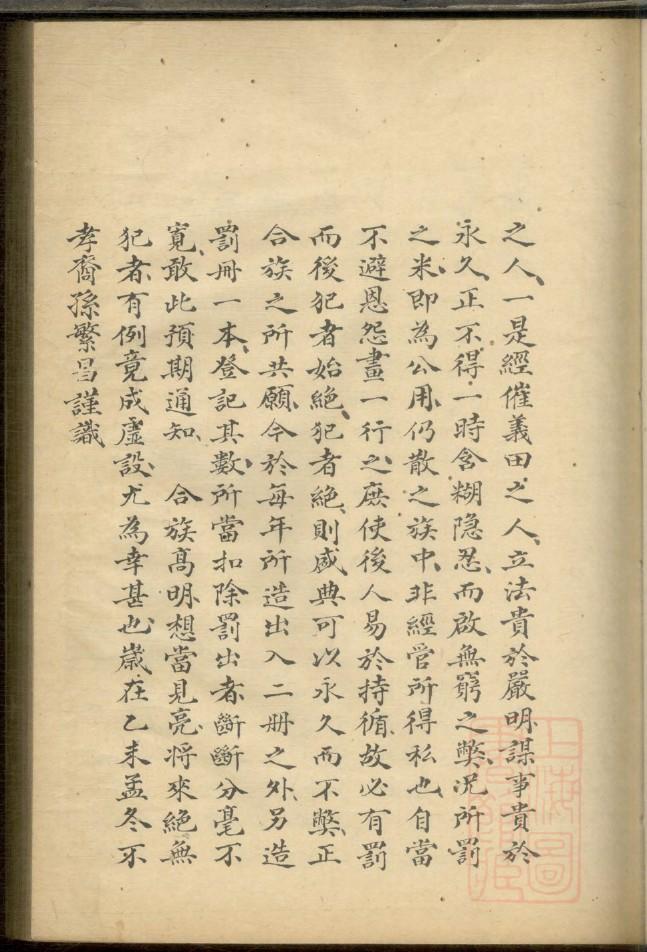 之人、一是經催義田之人、立法貴於嚴明、謀事貴於
永久、正不得一時含糊隐忍、而啟無窮之弊、况所罰
之米、即為公用、仍散之族中、非經管所得私也、自當
不避恩怨、畫一行之、庶使後人易於持循、故必有罰
而後犯者始絕、犯者絕、則盛典可以永久而不弊、正
合族之所共願、今於每年所造出入二册之外、另造
罰冊一本、登記其數、所當扣除罰出者、斷斷分毫不
寬、敢此預期通知、 合族髙明、想當見亮、將來絕無
犯者、有例竟成虛設、尤為幸甚也、歲在乙未孟冬不
孝裔孫繁昌謹識
上海圖書館藏